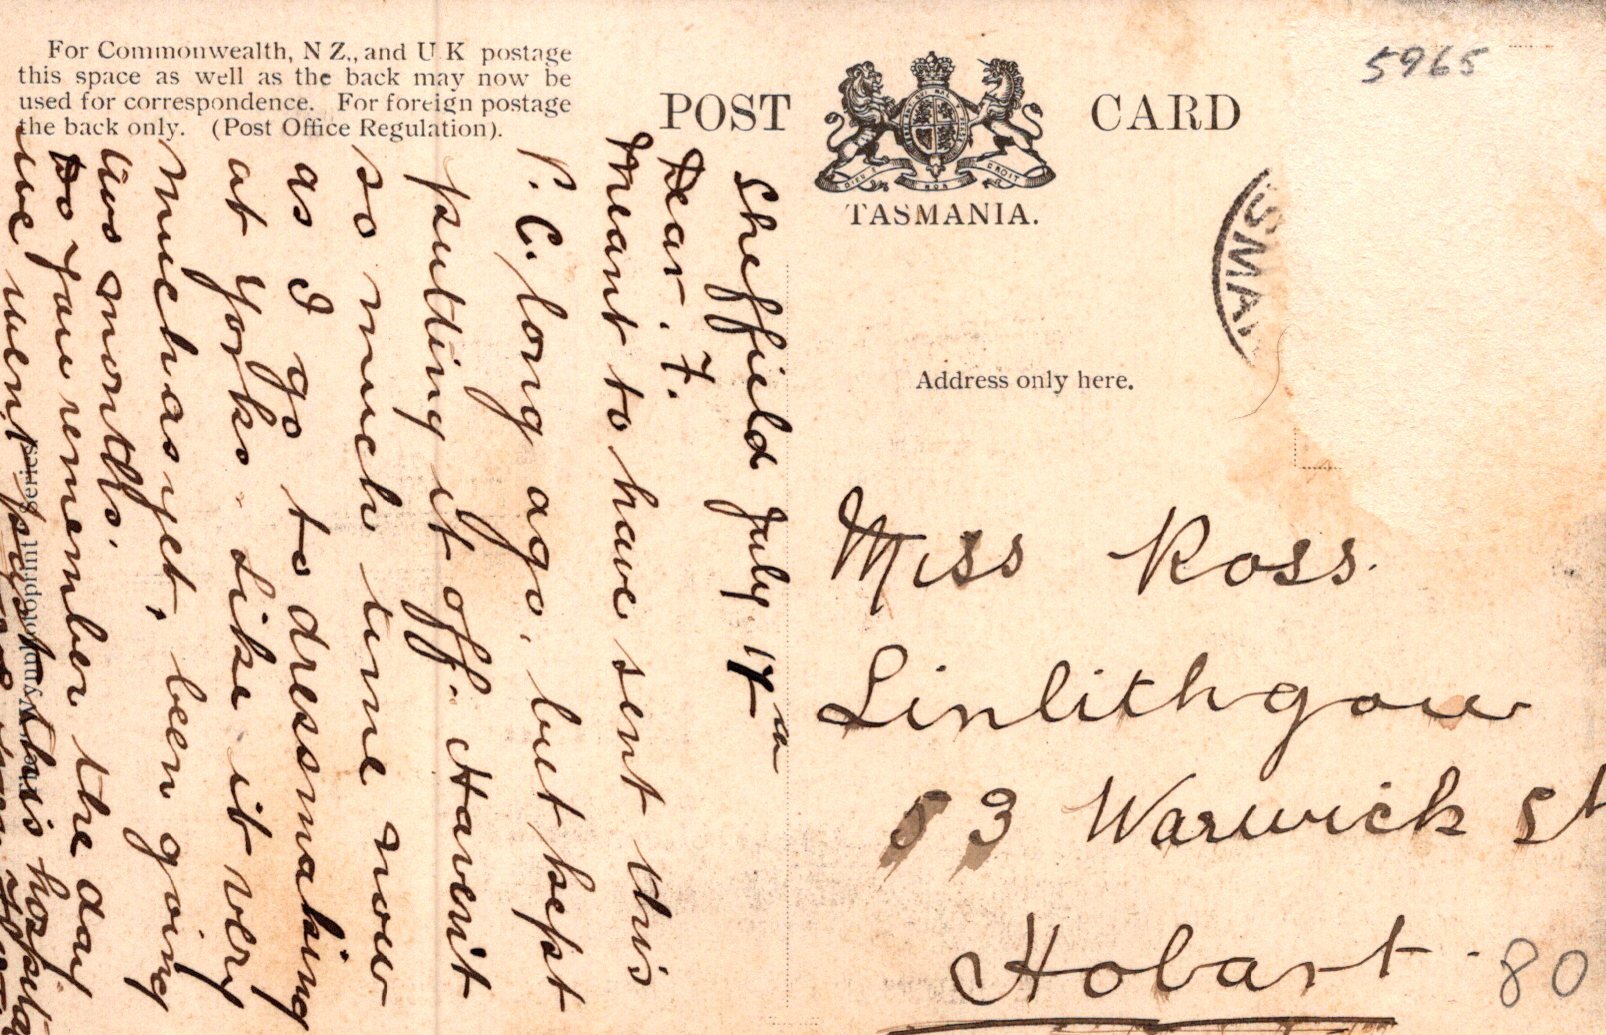 For Commonwealth, N Z., and U K postage
this space as well as the back may now be
used for correspondence. For foreign postage
the back only. (Post Office Regulation).
POST CARD
DIEU ET MON DROIT
TASMANIA.
5965
SMA
Address only here.
Sheffield July 17th
Dear F.
Meant to have sent this
P. C. long ago, but kept
putting it off. Haven't
so much time now
as I go to dressmaking
at Yorks. Like it very
much as yet, been going
two months.
Do you remember the day
we went past this hospital
Series
Miss Ross.
Linlithgow
53 Warwick St
Hobart.
80